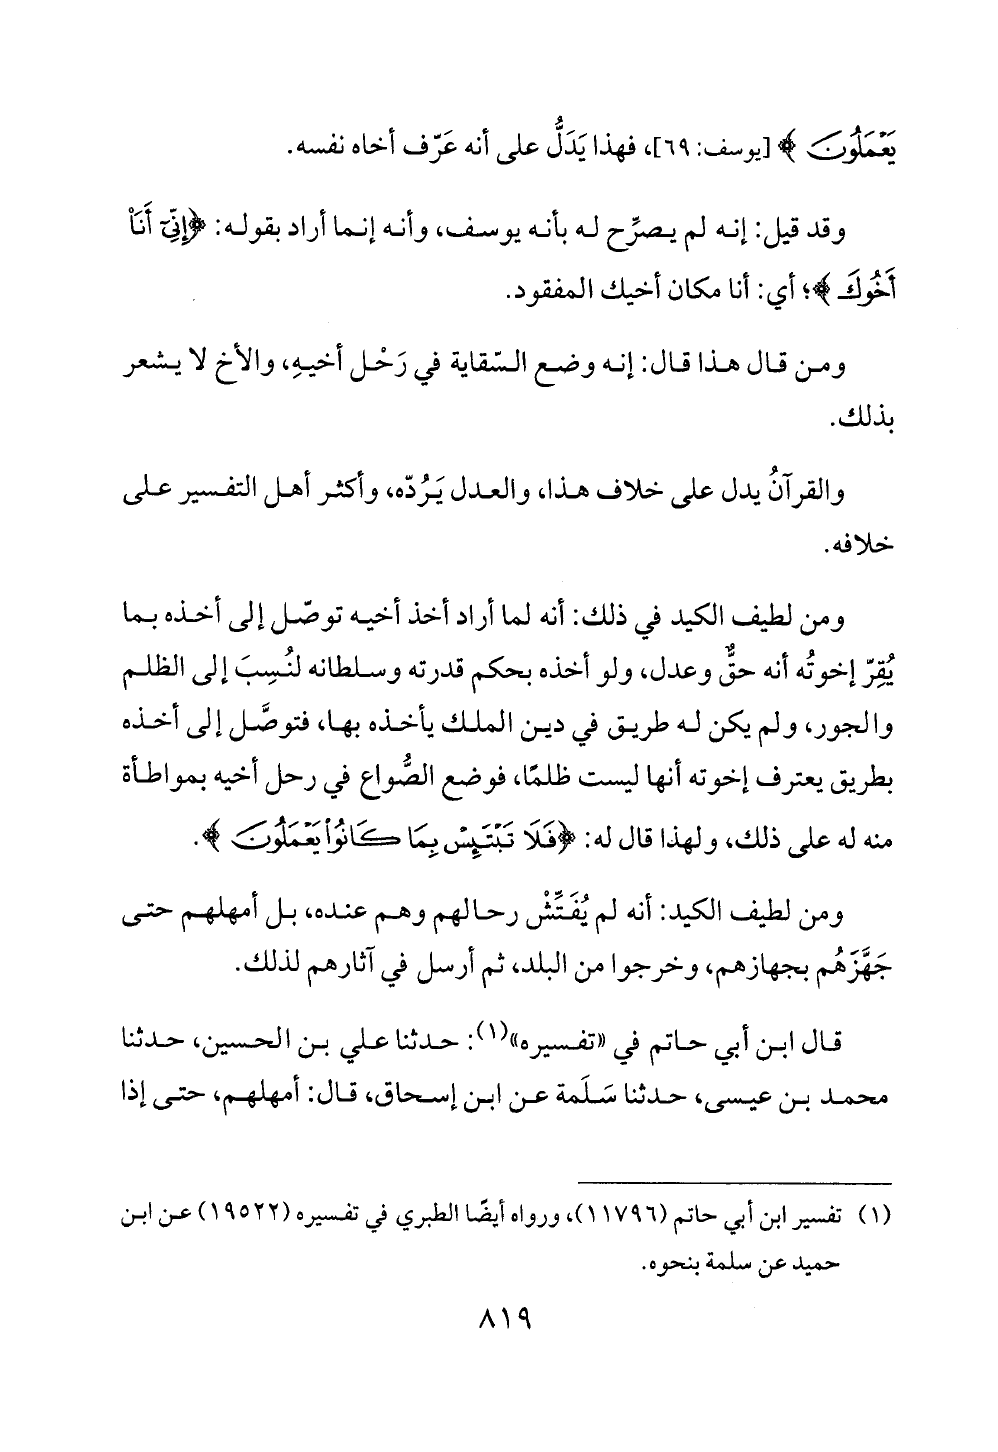 يَعْمَلُونَ ﴾ [يوسف: ٦٩]، فهذا يَدَلُّ على أنه عَرّف أخاه نفسه.
وقد قيل: إنه لم يصرِّح له بأنه يوسف، وأنه إنما أراد بقوله: ﴿إِنِّيٓ أَنَا۠
أَخُوكَ ﴾؛ أي: أنا مكان أخيك المفقود.
ومن قال هذا قال: إنه وضع السّقاية في رَحْل أخيهِ، والأخ لا يشعر
بذلك.
والقرآنُ يدل على خلاف هذا، والعدل يَرُدّه، وأكثر أهل التفسير على
خلافه.
ومن لطيف الكيد في ذلك: أنه لما أراد أخذ أخيه توصّل إلى أخذه بما
يُقِرّ إخوتُه أنه حقٌّ وعدل، ولو أخذه بحكم قدرته وسلطانه لنُسِبَ إلى الظلم
والجور، ولم يكن له طريق في دين الملك يأخذه بها، فتوصَّل إلى أخذه
بطريق يعترف إخوته أنها ليست ظلمًا، فوضع الصُّواع في رحل أخيه بمواطأة
منه له على ذلك، ولهذا قال له: ﴿فَلَا تَبْتَئِسْ بِمَا كَانُوا۟ يَعْمَلُونَ ﴾.
ومن لطيف الكيد: أنه لم يُفَتِّشْ رحالهم وهم عنده، بل أمهلهم حتى
جَهَّزَهُم بجهازهم، وخرجوا من البلد، ثم أرسل في آثارهم لذلك.
قال ابن أبي حاتم في «تفسيره»(١): حدثنا علي بن الحسين، حدثنا
محمد بن عيسى، حدثنا سَلَمة عن ابن إسحاق، قال: أمهلهم، حتى إذا
(١) تفسير ابن أبي حاتم (١١٧٩٦)، ورواه أيضًا الطبري في تفسيره (١٩٥٢٢) عن ابن
حميد عن سلمة بنحوه.
٨١٩